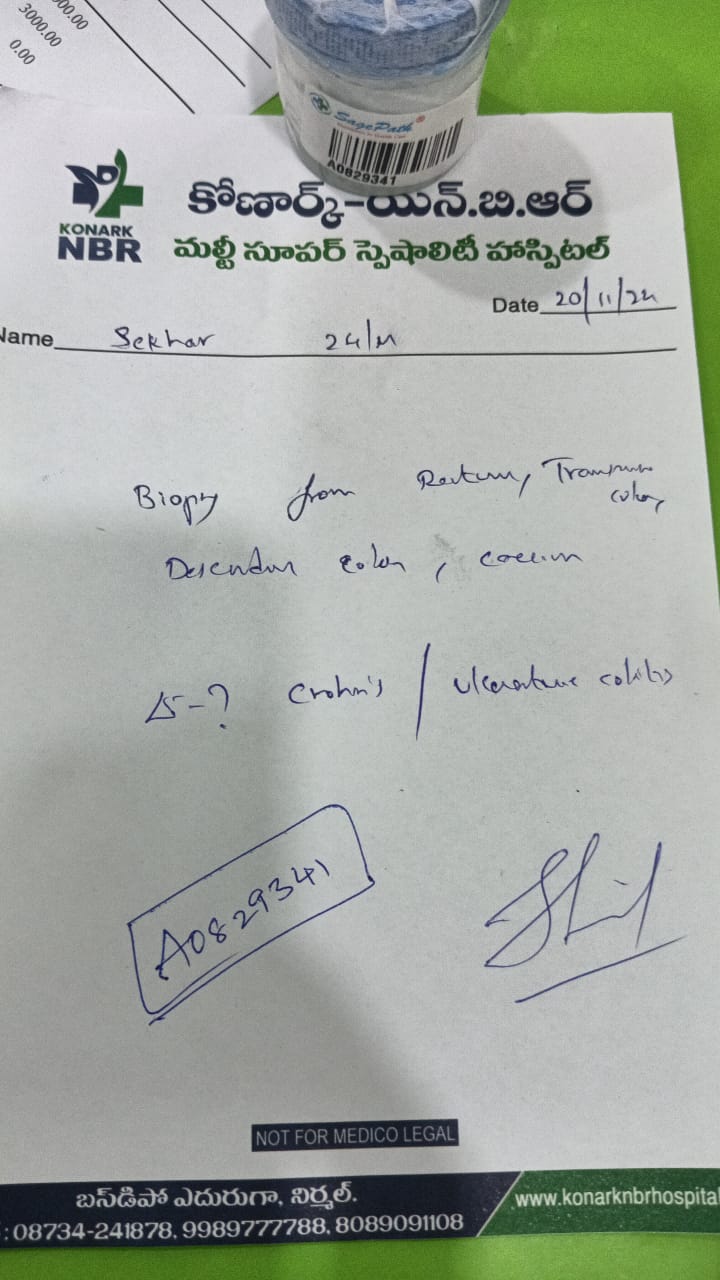 00.00
3000.00
0.00
SagePath®
A0829341
KONARK
NBR
కోణార్క్-యన్.బి.ఆర్
మల్టీ సూపర్ స్పెషాలిటీ హాస్పిటల్
Date 20/11/24
Name Sekhar 24/M
Biopsy from Rectum, Transverse
colon,
Descendin colon, coecum
? Crohn's / ulcerative colitis
A0829341
NOT FOR MEDICO LEGAL
బస్‌డిపో ఎదురుగా, నిర్మల్.
www.konarknbrhospital
: 08734-241878, 9989777788, 8089091108